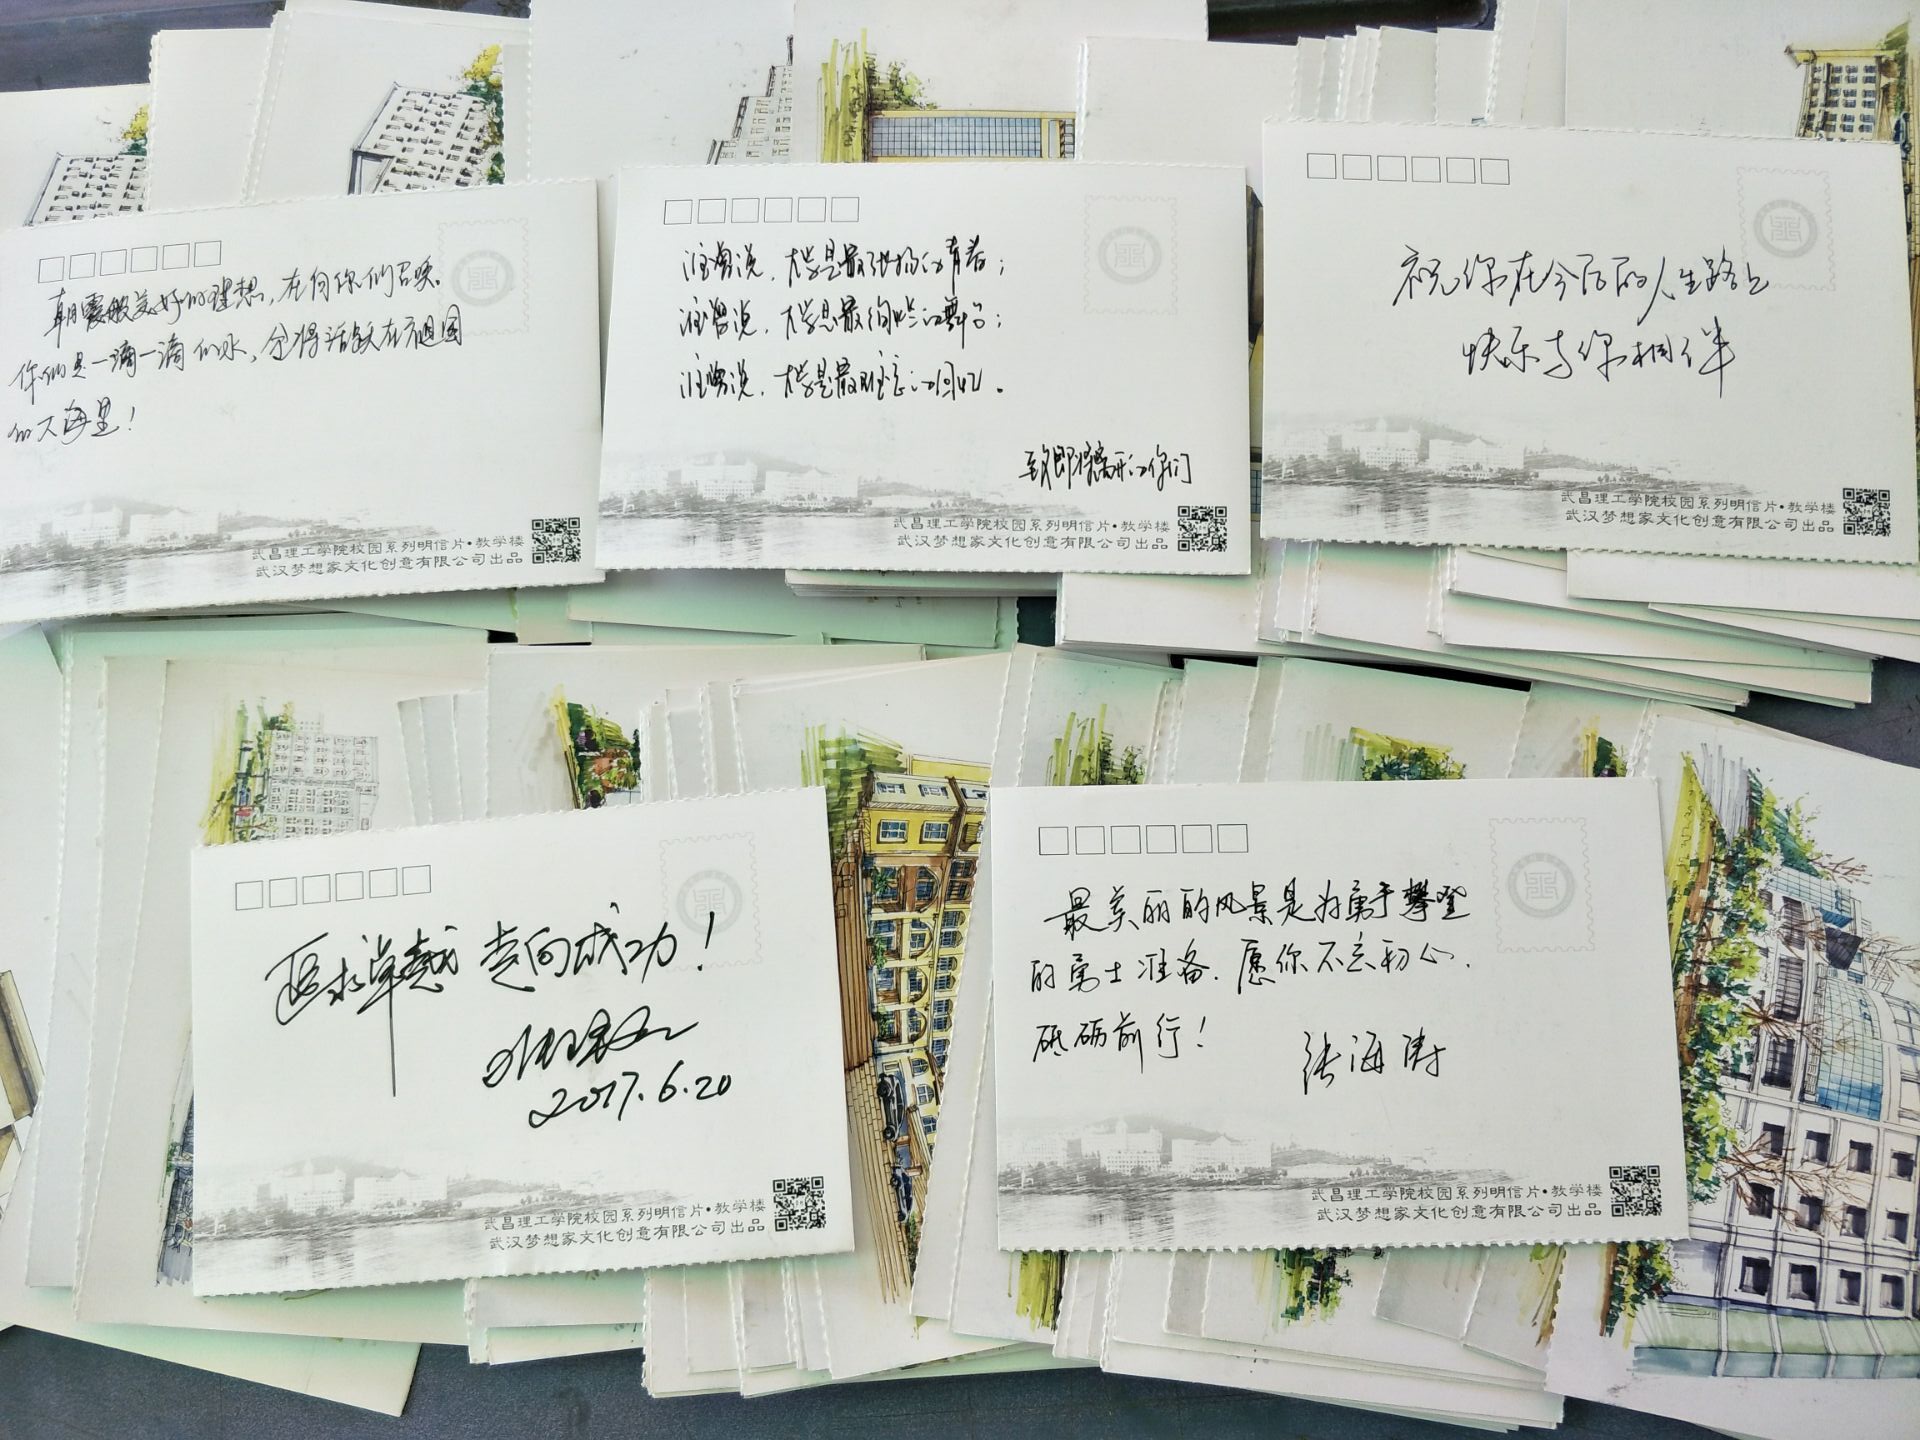 朝霞般美好的理想，在向你们召唤。
你们是一滴一滴的水，全将活跃在祖国
的大海里！
武昌理工学院校园系列明信片•教学楼
武汉梦想家文化创意有限公司出品
谁曾说，大学是最张扬的青春；
谁曾说，大学是最绚烂的舞台；
谁曾说，大学是最难忘的回忆。
致即将离开的你们
武昌理工学院校园系列明信片•教学楼
武汉梦想家文化创意有限公司出品
祝你在今后的人生路上
快乐与你相伴
武昌理工学院校园系列明信片•教学楼
武汉梦想家文化创意有限公司出品
追求卓越 走向成功！
2017.6.20
武昌理工学院校园系列明信片•教学楼
武汉梦想家文化创意有限公司出品
最美丽的风景是为勇于攀登
的勇士准备．愿你不忘初心．
砥砺前行！
张海涛
武昌理工学院校园系列明信片•教学楼
武汉梦想家文化创意有限公司出品